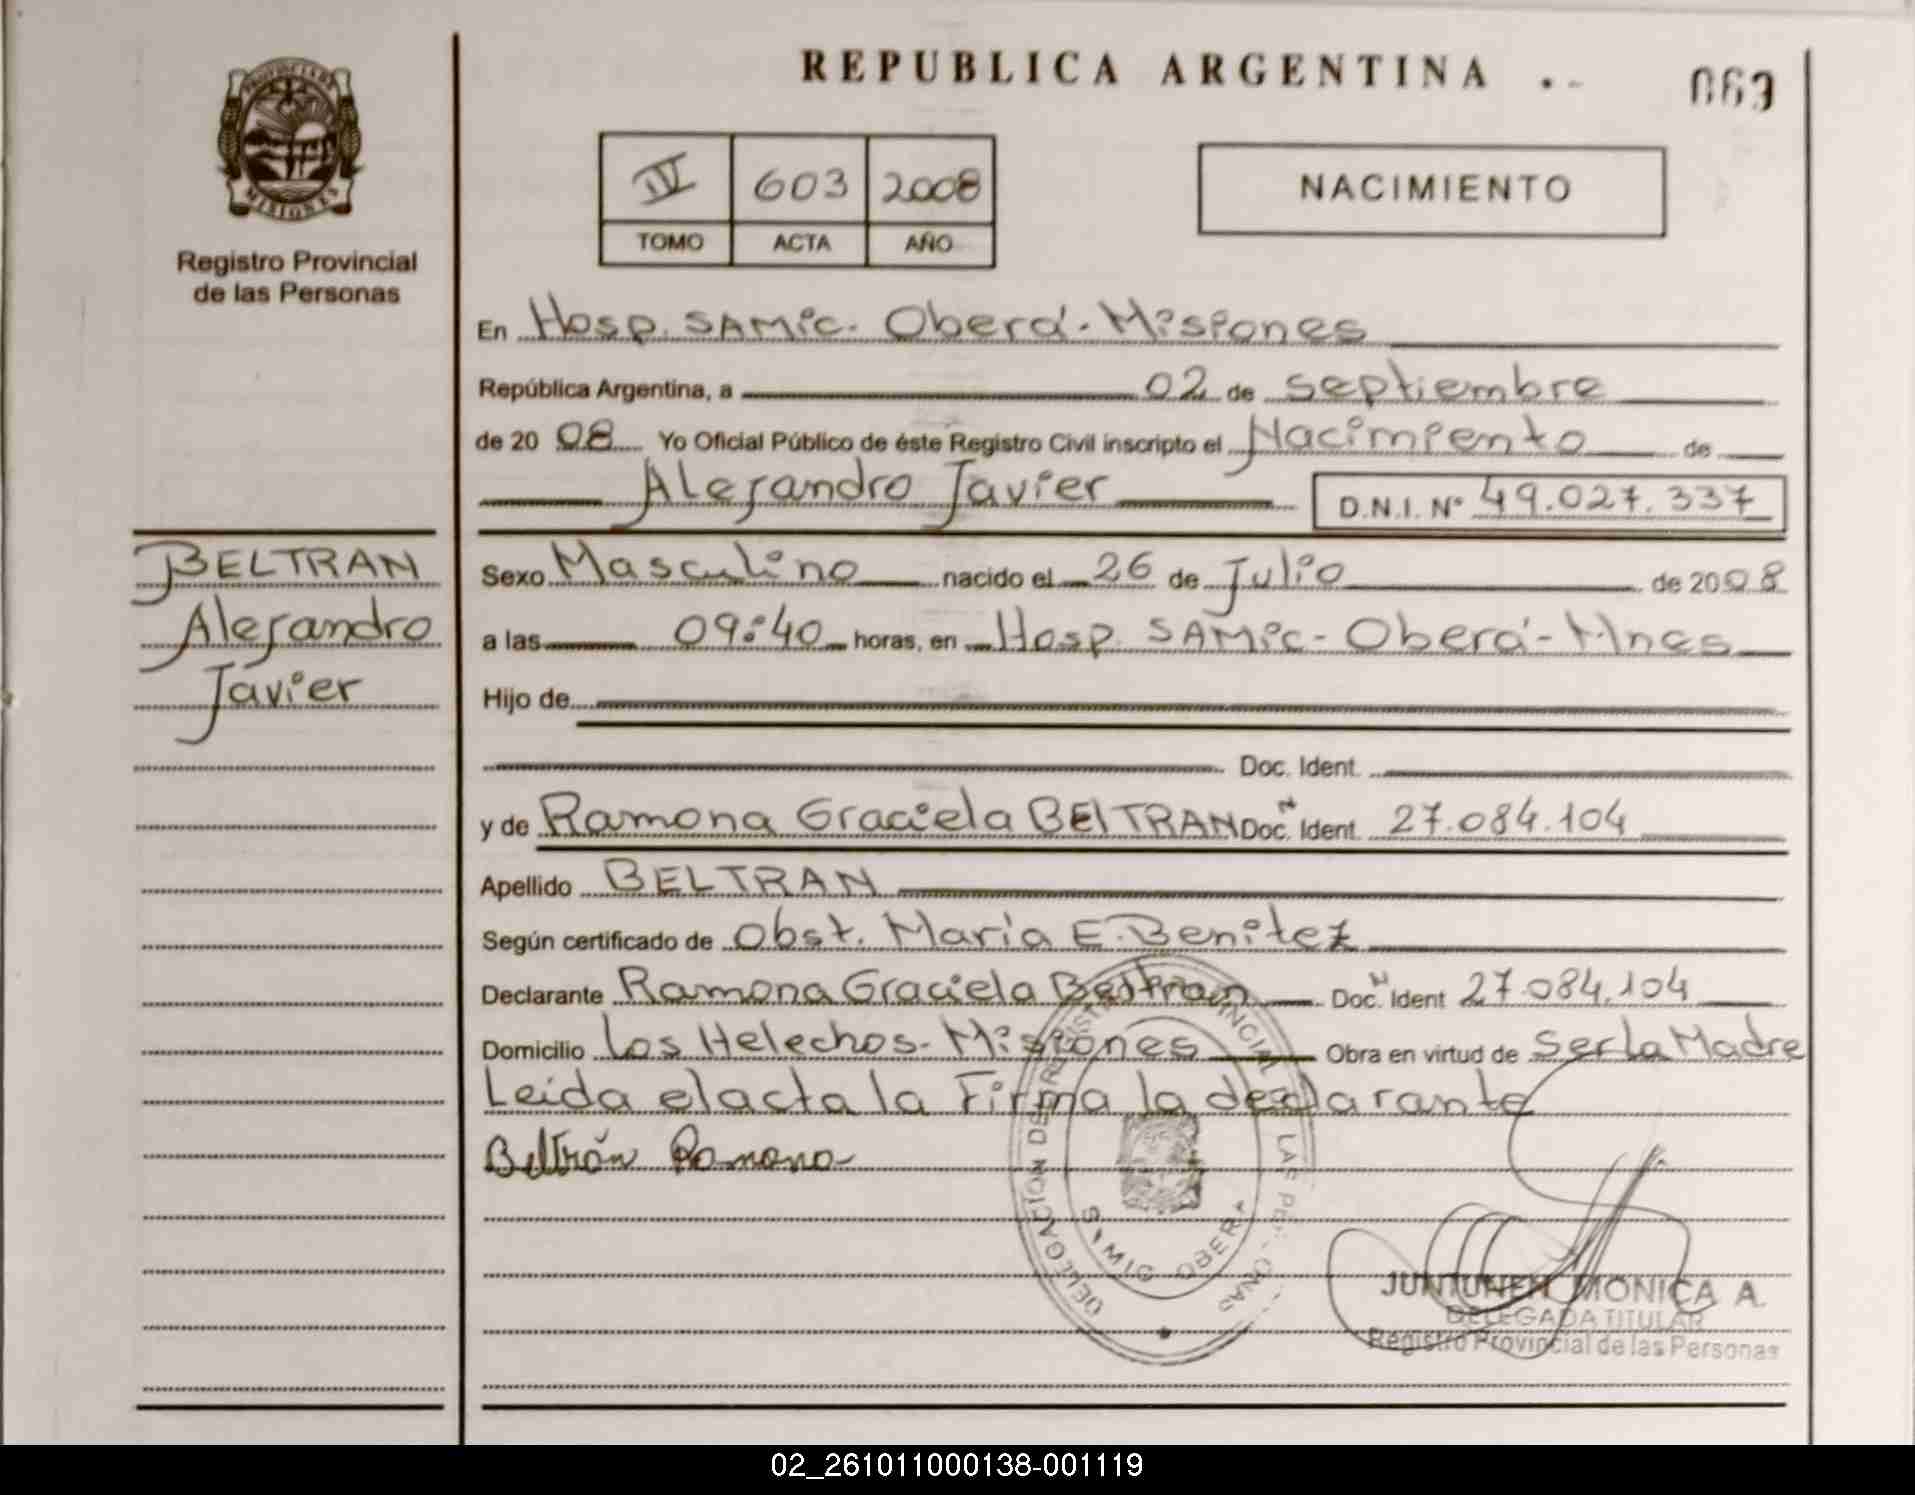 PROVINCIA DE
MISIONES
Registro Provincial
de las Personas
REPUBLICA ARGENTINA
069
IV 603 2008
TOMO ACTA AÑO
NACIMIENTO
En Hosp. SAMic. Oberá - Misiones
República Argentina, a 02 de septiembre
de 2008 Yo Oficial Público de éste Registro Civil inscripto el Nacimiento de
Alejandro Javier D.N.I. Nº 49.027.337
BELTRAN
Alejandro
Javier
Sexo Masculino nacido el 26 de Julio de 2008
a las 09:40 horas, en Hosp. SAMic - Oberá - Mnes
Hijo de
Doc. Ident.
y de Ramona Graciela BELTRAN Doc. N Ident. 27.084.104
Apellido BELTRAN
Según certificado de Obst. María E. Benitez
Declarante Ramona Graciela Beltran Doc. N Ident 27.084.104
Domicilio Los Helechos - Misiones Obra en virtud de Ser la Madre
Leida el acta la Firma la declarante
Beltrán Ramona
DELEGACION DE REGISTRO PROVINCIAL DE LAS PERSONAS
SAMIC OBERA
JUNTUNEN MONICA A.
DELEGADA TITULAR
Registro Provincial de las Personas
02_261011000138-001119